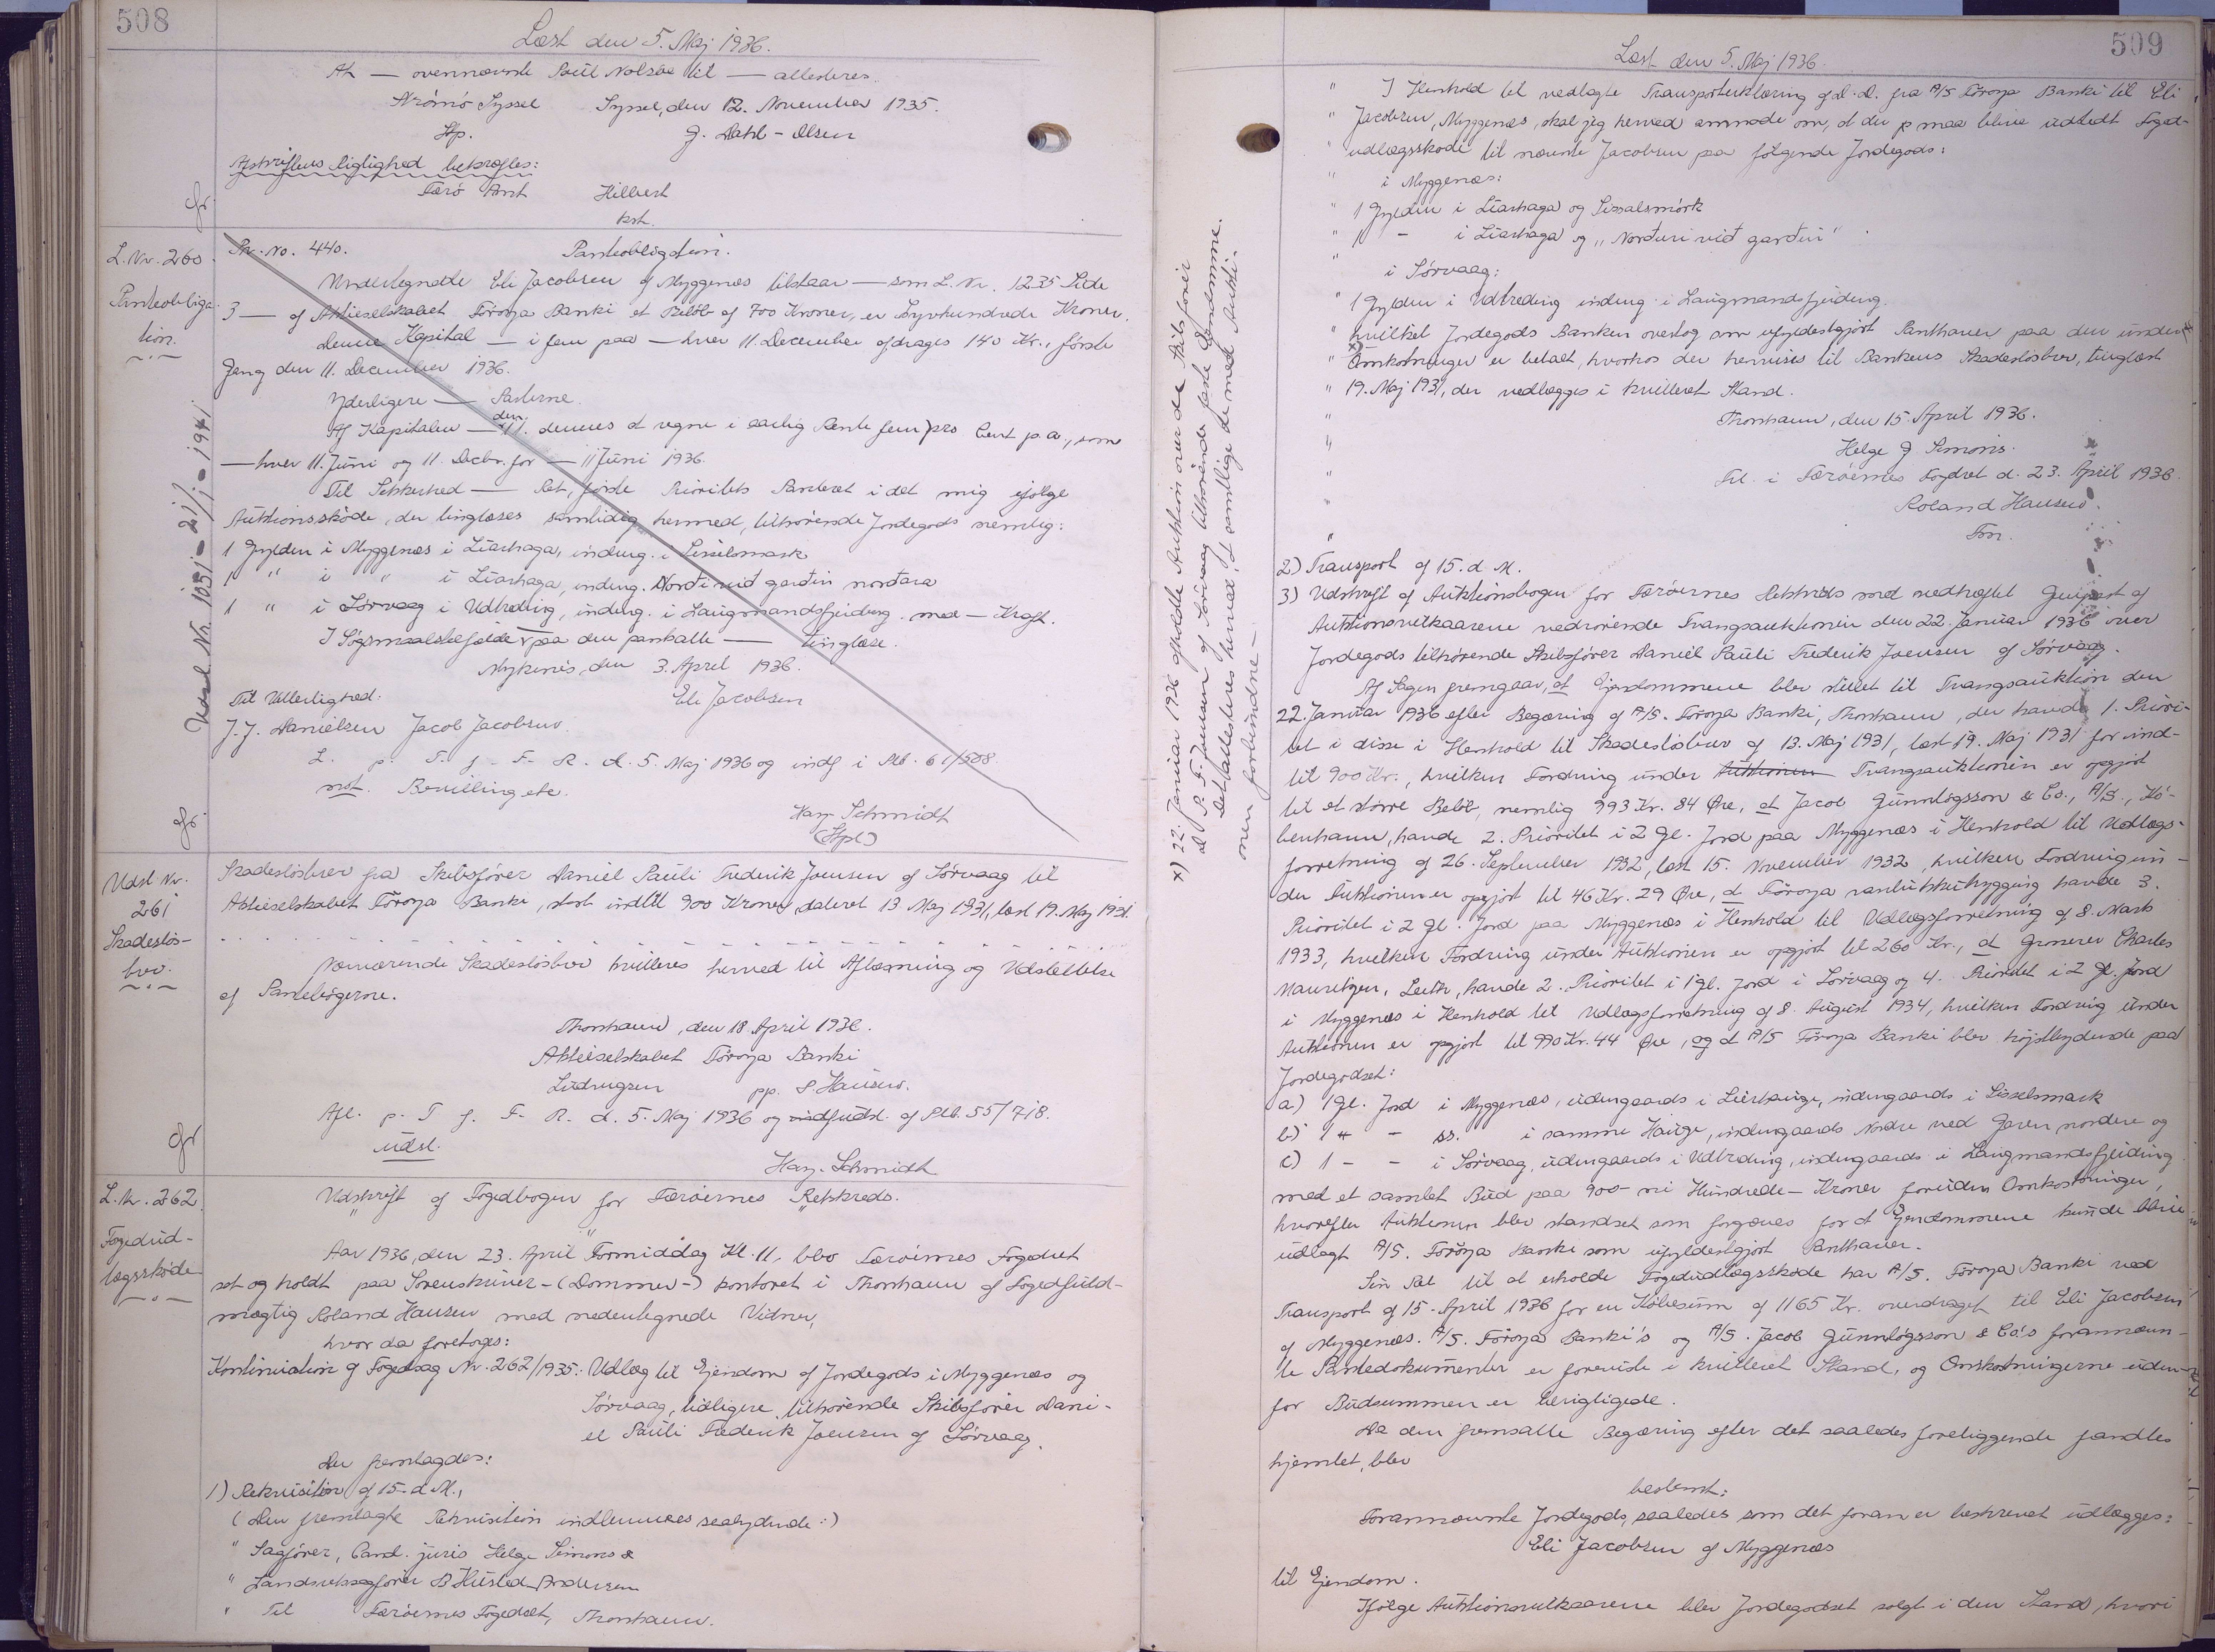 508
Læst den 5. Maj 1936.
At — ovennævnte Poul Nolsøe til — attesteres.
Strømø Syssel Syssel, den 12. November 1935.
Hp. J. Dahl-Olsen
Afskriftens rigtighed bekræftes:
Færø Amt Hilbert
kst.
L. Nr. 260
Panteobliga-
tion.
Pr. No. 440. Panteobligation.
Undertegnede Eli Jacobsen af Myggenæs tilstaar — som L. Nr. 1235 Side
3 — af Aktieselskabet Föroya Banki et Beløb af 700 Kroner, er Syvhundrede Kroner.
Denne Kapital — i fem paa — hver 11. December afdrages 140 Kr., første
Gang den 11. December 1936.
Yderligere — Parterne.
Af Kapitalen — den 11. dennes at regne i aarlig Rente fem pro Cent p.a., som
— hver 11. Juni og 11. Decbr. for — 11 Juni 1936.
Til Sikkerhed — Ret, første Prioritets Panteret i det mig ifølge
Auktionsskøde, der tinglæses samtidig hermed, tilhørende Jordegods nemlig:
1 Gylden i Myggenæs i Liarhaga, indeng. i Sisselsmark
1 " i " i Liarhaga, indeng. Nordi við garðin norðara
1 " i Sörvaag i Udtreding, indeng. i Laugmandsfjerding. med — Kraft.
I Søgsmaalstilfælde — paa den panthatte — tinglæse.
Nykenis, den 3. April 1936.
Til Vitterlighed: Eli Jacobsen
J. J. Danielsen Jacob Jacobsen.
L. p. T. f. F. R. d. 5. Maj 1936 og indf i Ptb. 61/508.
mst. Bevilling etc.
Harz-Schmidt
(Hpl)
Udsl. Nr. 1031 - 21/1 - 1941
Udsl Nr.
261
Skadesløs-
brev.
Skadesløsbrev fra Skibsfører Daniel Pauli Frederik Joensen af Sörvaag til
Aktieselskabet Föroya Banki, stort indtil 900 Kroner, dateret 13 Maj 1931, læst 19. Maj 1931.
Nærværende Skadesløsbrev kvitteres herved til Aflæsning og Udslettelse
af Pantebøgerne.
Thorshavn, den 18 April 1936.
Aktieselskabet Föroya Banki
pp. P. Hansen.
Afl. p. T f. F. R. d. 5. Maj 1936 og udsl. af Ptb. 55/718.
udsl.
Harz-Schmidt
L. Nr. 262.
Fogedud-
lægsskøde
Udskrift af Fogedbogen for Færøernes Retskreds.
Aar 1936, den 23. April Formiddag Kl. 11, blev Færøernes Fogedret
sat og holdt paa Sorenskriver- (Dommer-) kontoret i Thorshavn af Fogedfuld-
mægtig Roland Hansen med nedentegnede Vidner,
hvor da foretoges:
Kontinuation af Fogedsag Nr. 262/1935: Udlæg til Ejendom af Jordegods i Myggenæs og
Sörvaag, tidligere tilhørende Skibsfører Dani-
el Pauli Frederik Joensen af Sörvaag.
Der fremlagdes:
1) Rekvisition af 15. d. M.,
(Den fremlagte Rekvisition indlemmes saalydende:)
" Sagfører, Cand. juris Helge Simonis &
" Landsretssagfører B Husted-Andersen
" Til Færøernes Fogedret, Thorshavn.
509
Læst den 5. Maj 1936.
" I Henhold til vedlagte Transporterklæring af D. D. fra A/S Föroya Banki til Eli
" Jacobsen, Myggenæs, skal jeg herved anmode om, at der maa blive udstedt Foged-
" udlægsskøde til nævnte Jacobsen paa følgende Jordegods:
" i Myggenæs:
" 1 Gylden i Liarhaga og Sissalsmörk
" 1 — i Liarhaga og "Norðuri við garðin"
" i Sörvaag:
" 1 Gylden i Udtreding indeng. i Laugmandsfjerding.
" hvilket Jordegods Banken overtog som ufyldestgjort Panthaver paa den under x)
" Omkostninger er betalt, hvorhos der henvises til Bankens Skadesløsbrev, tinglæst
" 19. Maj 1931, der vedlægges i kvitteret Stand.
" Thorshavn, den 15. April 1936.
" Helge J Simonis.
" Til. i Færøernes Fogdret d. 23. April 1936.
" Roland Hansen.
" Fm.
2) Transport af 15. d M.
3) Udskrift af Auktionsbogen for Færøernes Retskreds med vedhæftet Genpart af
Auktionsvilkaarene vedrørende Tvangsauktionen den 22. Januar 1936 over
Jordegods tilhørende Skibsfører Daniel Pauli Frederik Joensen af Sörvaag.
Af Sagen fremgaar, at Ejendommene blev stillet til Tvangsauktion den
22. Januar 1936 efter Begæring af A/S. Föroya Banki, Thorshavn, der havde 1. Priori-
tet i disse i Henhold til Skadesløsbrev af 13. Maj 1931, læst 19. Maj 1931 for ind-
til 900 Kr., hvilken Fordring under Auktionen Tvangsauktionen er opgjort
til et større Beløb, nemlig 993 Kr. 84 Øre, at Jacob Gunnlögsson & Co., A/S., Kö-
benhavn, havde 2. Prioritet i 2 Gl. Jord paa Myggenæs i Henhold til Udlægs-
forretning af 26. September 1932, læst 15. November 1932, hvilken Fordring un-
der Auktionen er opgjort til 46 Kr. 29 Øre, at Föroya vanlukkutrygging havde 3.
Prioritet i 2 Gl. Jord paa Myggenæs i Henhold til Udlægsforretning af 8. Marts
1933, hvilken Fordring under Auktionen er opgjort til 260 Kr., at Grosserer Charles
Mauritzen, Leith, havde 2. Prioritet i 1 gl. Jord i Sörvaag og 4. Prioritet i 2 gl. Jord
i Myggenæs i Henhold til Udlægsforretning af 8. August 1934, hvilken Fordring under
Auktionen er opgjort til 990 Kr. 44 Øre, og at A/S Föroya Banki blev højstbydende paa
Jordegodset:
a) 1 gl. Jord i Myggenæs, udengaards i Liarhauge, indengaards i Sisselsmark
b) 1 " - ss. i samme Hauge, indengaards Nordre ved Garen nordere og
c) 1 - - i Sörvaag, udengaards i Udtreding, indengaards i Laugmandsfjerding
med et samlet Bud paa 900 - ni Hundrede - Kroner foruden Omkostninger,
hvorefter Auktionen blev standset som forgæves for at Ejendommene kunde blive
udlagt A/S. Föroya Banki som ufyldestgjort Panthaver.
Sin Ret til at erholde Fogedudlægsskøde har A/S. Föroya Banki ved
Transport af 15. April 1936 for en Købesum af 1165 Kr. overdraget til Eli Jacobsen
af Myggenæs. A/S. Föroya Banki's og A/S. Jacob Gunnlögsson & Co's forannævn-
te Pantedokumenter er foreviste i kvitteret Stand, og Omkostningerne uden-
for Budsummen er berigtigede.
Da den fremsatte Begæring efter det saaledes foreliggende fandtes
hjemlet, blev
bestemt:
Forannævnte Jordegods, saaledes som det foran er beskrevet udlægges:
Eli Jacobsen af Myggenæs
til Ejendom.
Ifølge Auktionsvilkaarene blev Jordegodset solgt i den Stand, hvori
x) 22. Januar 1936 afholdte Auktion over de Skibsfører
D. P. F. Joensen af Sörvaag tilhørende faste Ejendomme.
Det attesteres herved, at samtlige de med Aukti-
onen forbundne —